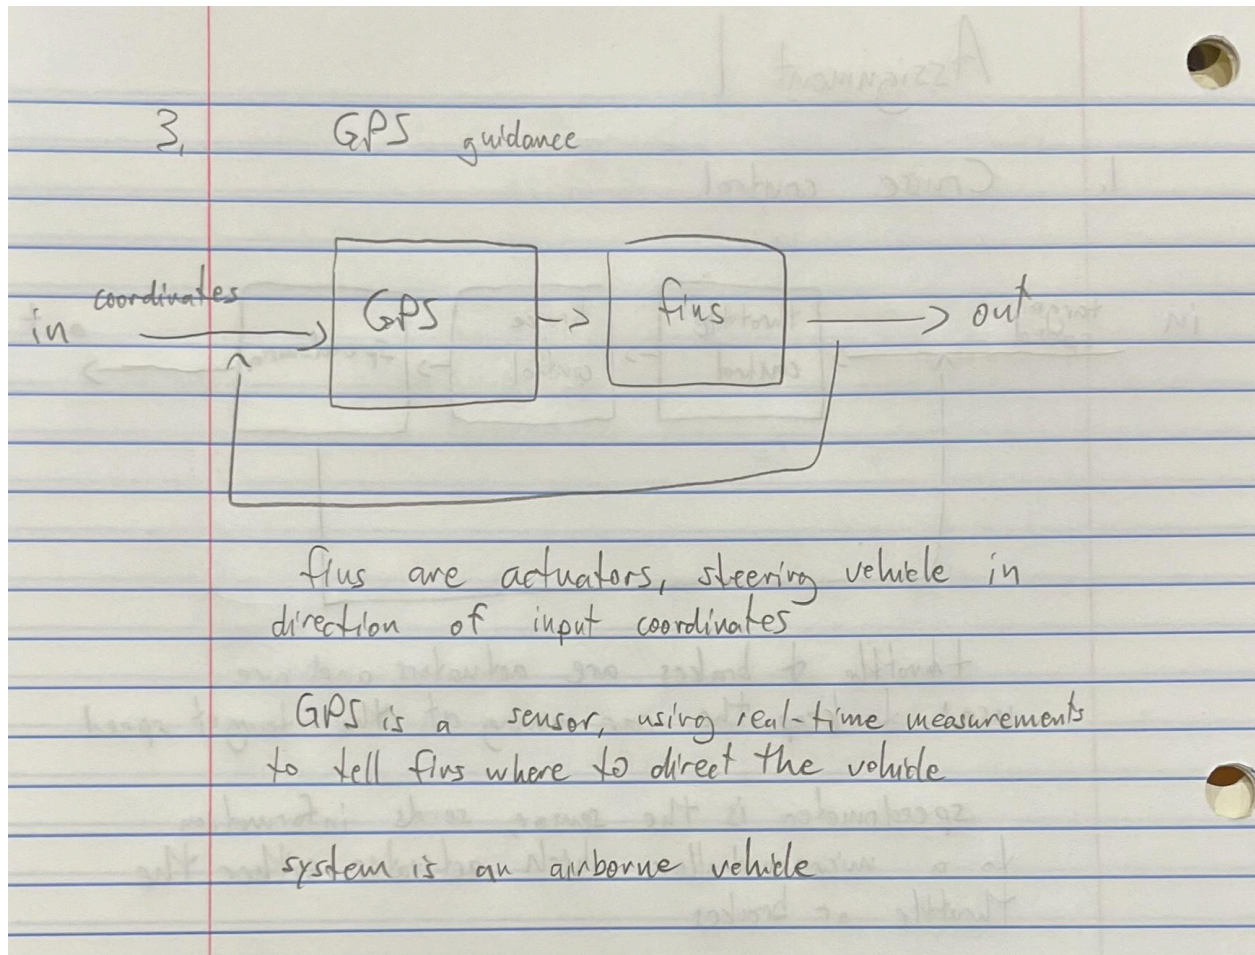 3. GPS guidance
coordinates
in
GPS
fins
out
fins are actuators, steering vehicle in
direction of input coordinates
GPS is a sensor, using real-time measurements
to tell fins where to direct the vehicle
system is an airborne vehicle